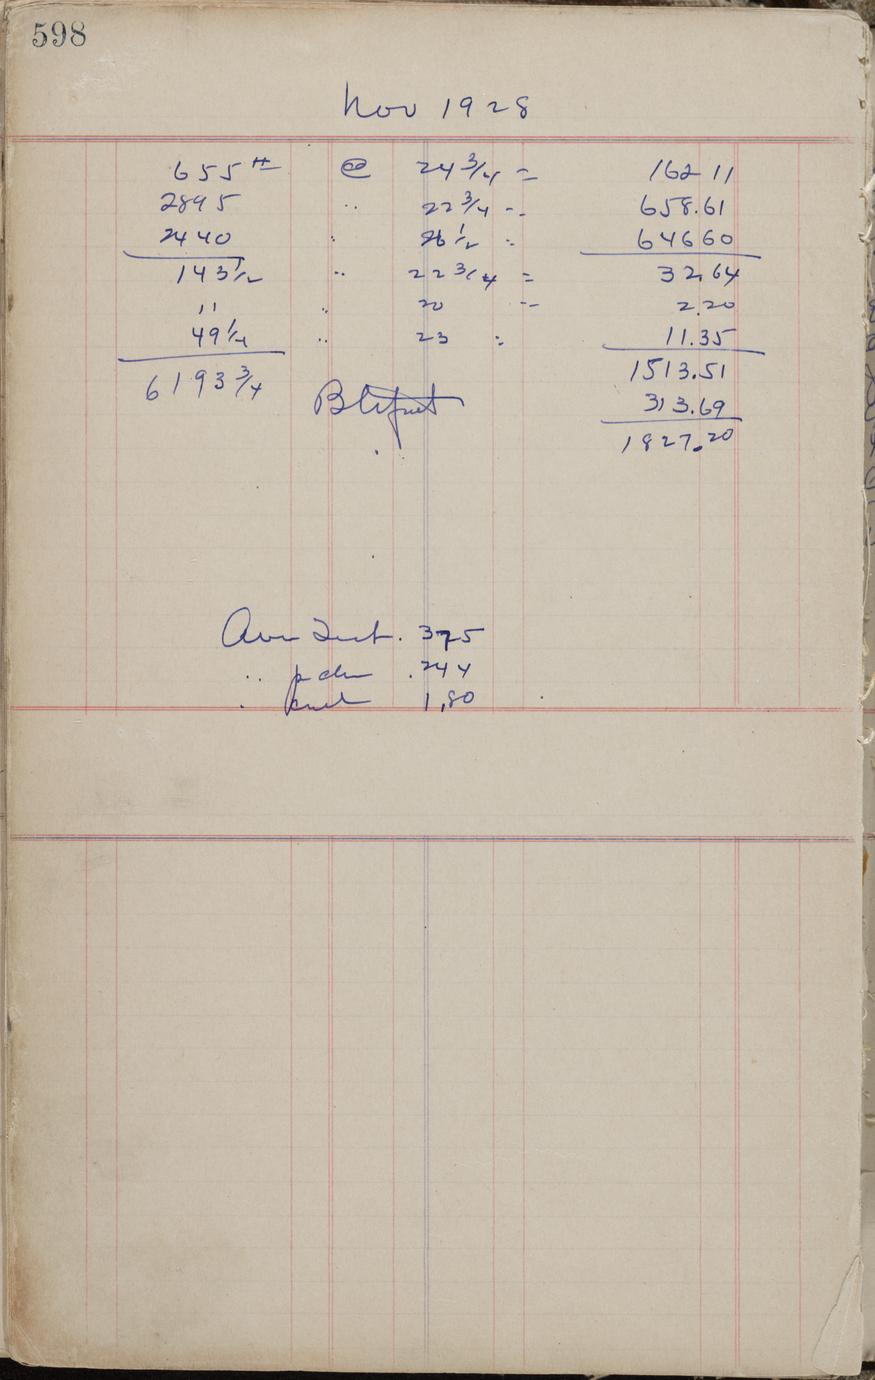 598
Nov 1928
655 # @ 24 3/4 = 162 11
2895 " 22 3/4 = 658.61
2440 " 26 1/2 = 646 60
143 1/2 " 22 3/4 = 32.64
11 " 20 = 2.20
49 1/4 " 23 = 11.35
6193 3/4 1513.51
313.69
1827.20
Ave Test. 375
" .244
" 1.80